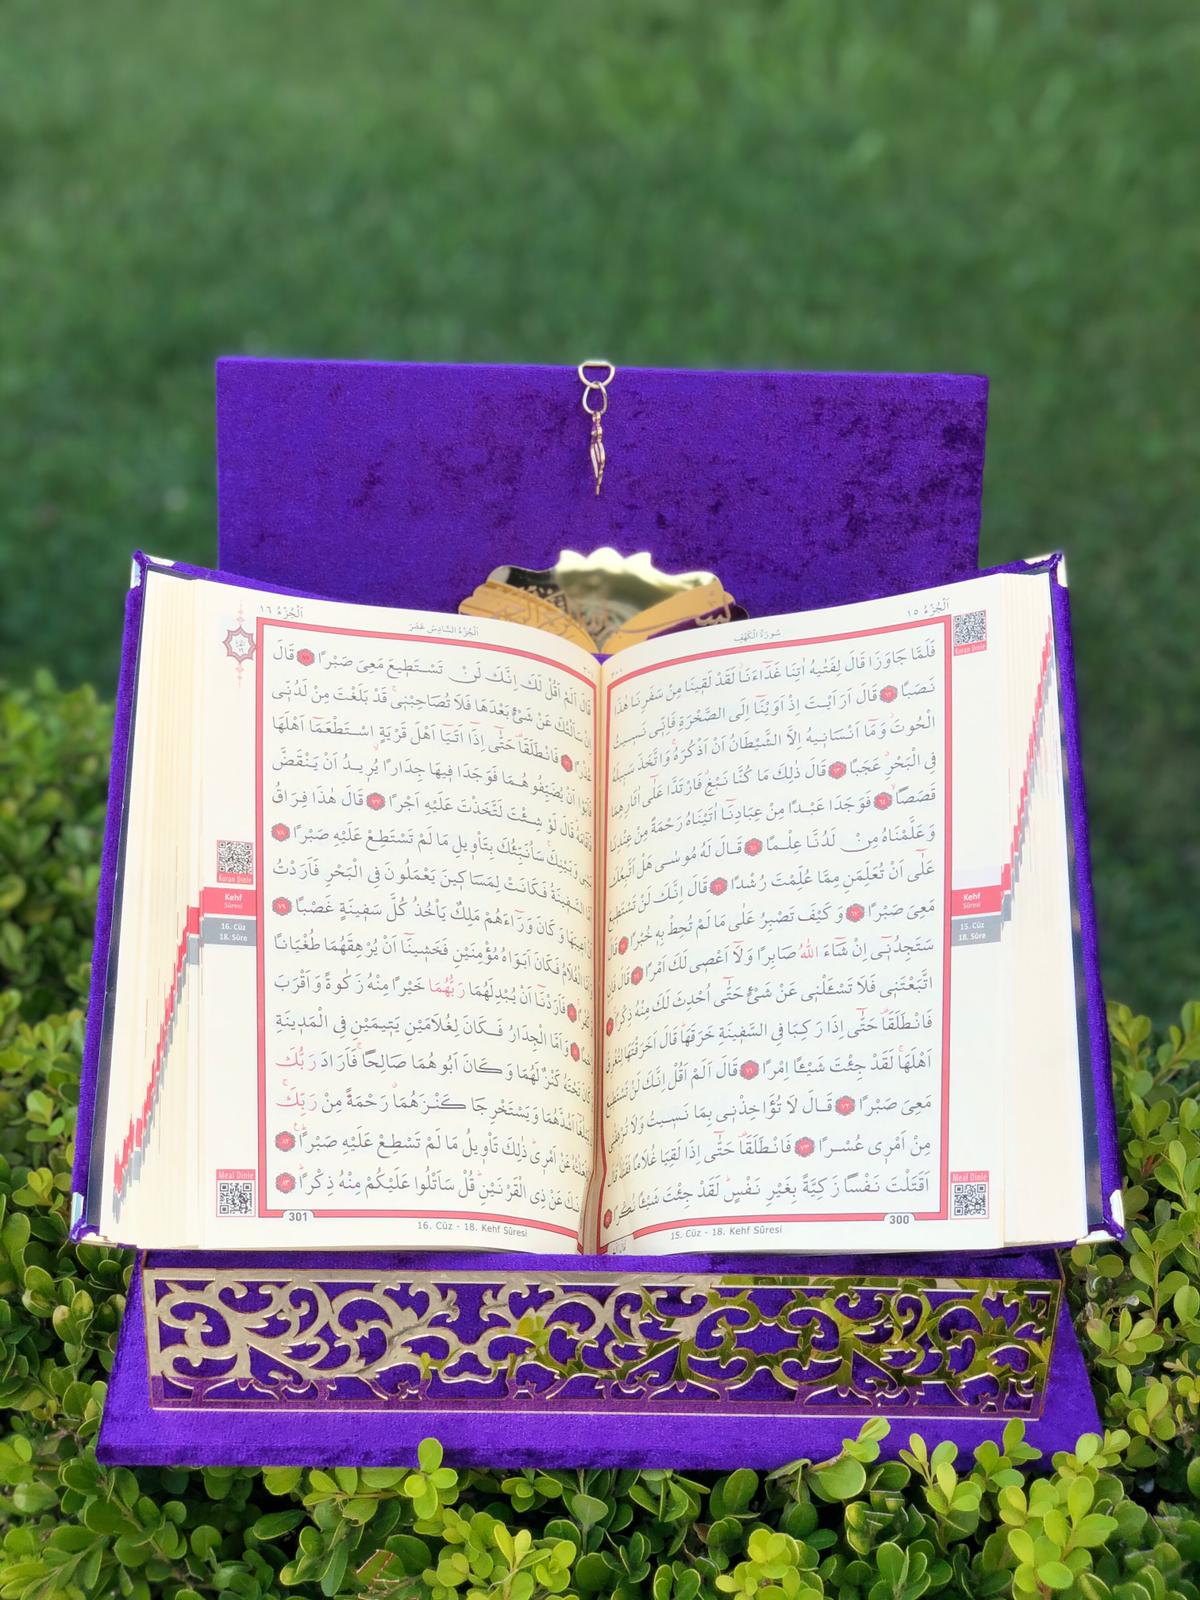 اَلْجُزْءُ ١٥
سُورَةُ الْكَهْفِ
Kuran Dinle
فَلَمَّا جَاوَزَا قَالَ لِفَتٰيهُ اٰتِنَا غَدَٓاءَنَاۘ لَقَدْ لَقٖينَا مِنْ سَفَرِنَا هٰذَا
نَصَبًا ٦٢ قَالَ اَرَاَيْتَ اِذْ اَوَيْنَٓا اِلَى الصَّخْرَةِ فَاِنّٖى نَسٖيتُ
الْحُوتَۘ وَمَٓا اَنْسَانٖيهُ اِلَّا الشَّيْطَانُ اَنْ اَذْكُرَهُۚ وَاتَّخَذَ سَبٖيلَهُ
فِى الْبَحْرِۗ عَجَبًا ٦٣ قَالَ ذٰلِكَ مَا كُنَّا نَبْغِۗ فَارْتَدَّا عَلٰٓى اٰثَارِهِمَا
قَصَصًاۙ ٦٤ فَوَجَدَا عَبْدًا مِنْ عِبَادِنَٓا اٰتَيْنَاهُ رَحْمَةً مِنْ عِنْدِنَا
وَعَلَّمْنَاهُ مِنْ لَدُنَّا عِلْمًا ٦٥ قَالَ لَهُ مُوسٰى هَلْ اَتَّبِعُكَ
عَلٰٓى اَنْ تُعَلِّمَنِ مِمَّا عُلِّمْتَ رُشْدًا ٦٦ قَالَ اِنَّكَ لَنْ تَسْتَطٖيعَ
مَعِىَ صَبْرًا ٦٧ وَكَيْفَ تَصْبِرُ عَلٰى مَا لَمْ تُحِطْ بِهٖ خُبْرًا ٦٨ قَالَ
سَتَجِدُنٖٓى اِنْ شَٓاءَ اللّٰهُ صَابِرًا وَلَٓا اَعْصٖى لَكَ اَمْرًا ٦٩ قَالَ فَاِنِ
اتَّبَعْتَنٖى فَلَا تَسْـَٔلْنٖى عَنْ شَىْءٍ حَتّٰٓى اُحْدِثَ لَكَ مِنْهُ ذِكْرًا ٧٠
فَانْطَلَقَا۠ حَتّٰٓى اِذَا رَكِبَا فِى السَّفٖينَةِ خَرَقَهَاۜ قَالَ اَخَرَقْتَهَا لِتُغْرِقَ
اَهْلَهَاۚ لَقَدْ جِئْتَ شَيْـًٔا اِمْرًا ٧١ قَالَ اَلَمْ اَقُلْ اِنَّكَ لَنْ تَسْتَطٖيعَ
مَعِىَ صَبْرًا ٧٢ قَالَ لَا تُؤَاخِذْنٖى بِمَا نَسٖيتُ وَلَا تُرْهِقْنٖى
مِنْ اَمْرٖى عُسْرًا ٧٣ فَانْطَلَقَا۠ حَتّٰٓى اِذَا لَقِيَا غُلَامًا فَقَتَلَهُۙ قَالَ
اَقَتَلْتَ نَفْسًا زَكِيَّةً بِغَيْرِ نَفْسٍۜ لَقَدْ جِئْتَ شَيْـًٔا نُكْرًا
Kehf
Sûresi
15. Cüz
18. Sûre
Meal Dinle
300
15. Cüz - 18. Kehf Sûresi
اَلْجُزْءُ ١٦
اَلْجُزْءُ السَّادِسَ عَشَرَ
قَالَ اَلَمْ اَقُلْ لَكَ اِنَّكَ لَنْ تَسْتَطٖيعَ مَعِىَ صَبْرًا ٧٥ قَالَ
اِنْ سَاَلْتُكَ عَنْ شَىْءٍ بَعْدَهَا فَلَا تُصَاحِبْنٖىۚ قَدْ بَلَغْتَ مِنْ لَدُنّٖى
عُذْرًا ٧٦ فَانْطَلَقَا۠ حَتّٰٓى اِذَٓا اَتَيَٓا اَهْلَ قَرْيَةٍۨ اسْتَطْعَمَٓا اَهْلَهَا
فَاَبَوْا اَنْ يُضَيِّفُوهُمَا فَوَجَدَا فٖيهَا جِدَارًا يُرٖيدُ اَنْ يَنْقَضَّ
فَاَقَامَهُۜ قَالَ لَوْ شِئْتَ لَتَّخَذْتَ عَلَيْهِ اَجْرًا ٧٧ قَالَ هٰذَا فِرَاقُ
بَيْنٖى وَبَيْنِكَۚ سَاُنَبِّئُكَ بِتَاْوٖيلِ مَا لَمْ تَسْتَطِعْ عَلَيْهِ صَبْرًا ٧٨
اَمَّا السَّفٖينَةُ فَكَانَتْ لِمَسَاكٖينَ يَعْمَلُونَ فِى الْبَحْرِ فَاَرَدْتُ
اَنْ اَعٖيبَهَا وَكَانَ وَرَٓاءَهُمْ مَلِكٌ يَاْخُذُ كُلَّ سَفٖينَةٍ غَصْبًا ٧٩
وَاَمَّا الْغُلَامُ فَكَانَ اَبَوَاهُ مُؤْمِنَيْنِ فَخَشٖينَٓا اَنْ يُرْهِقَهُمَا طُغْيَانًا
وَكُفْرًاۚ ٨٠ فَاَرَدْنَٓا اَنْ يُبْدِلَهُمَا رَبُّهُمَا خَيْرًا مِنْهُ زَكٰوةً وَاَقْرَبَ
رُحْمًا ٨١ وَاَمَّا الْجِدَارُ فَكَانَ لِغُلَامَيْنِ يَتٖيمَيْنِ فِى الْمَدٖينَةِ
وَكَانَ تَحْتَهُ كَنْزٌ لَهُمَا وَكَانَ اَبُوهُمَا صَالِحًاۚ فَاَرَادَ رَبُّكَ
اَنْ يَبْلُغَٓا اَشُدَّهُمَا وَيَسْتَخْرِجَا كَنْزَهُمَاۗ رَحْمَةً مِنْ رَبِّكَۚ
وَمَا فَعَلْتُهُ عَنْ اَمْرٖىۜ ذٰلِكَ تَاْوٖيلُ مَا لَمْ تَسْطِعْ عَلَيْهِ صَبْرًاۜ ٨٢
وَيَسْـَٔلُونَكَ عَنْ ذِى الْقَرْنَيْنِۜ قُلْ سَاَتْلُوا عَلَيْكُمْ مِنْهُ ذِكْرًاۜ ٨٣
Kuran Dinle
Kehf
Sûresi
16. Cüz
18. Sûre
Meal Dinle
301
16. Cüz - 18. Kehf Sûresi